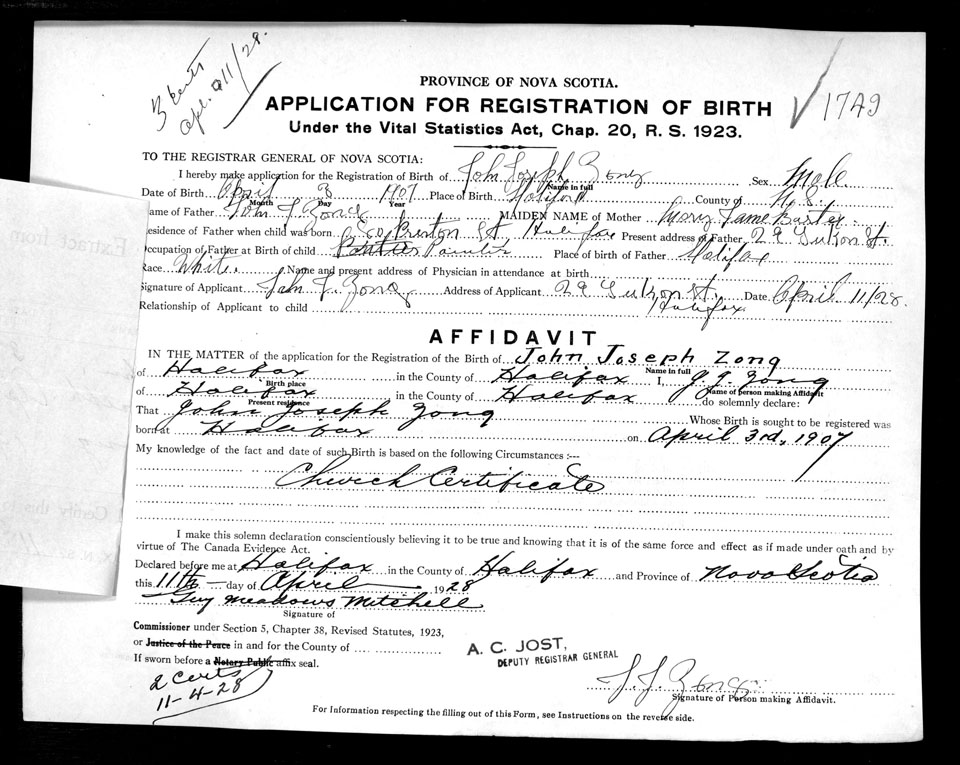 3 certs
apl. 11/28.
PROVINCE OF NOVA SCOTIA.
APPLICATION FOR REGISTRATION OF BIRTH
1749
Under the Vital Statistics Act, Chap. 20, R. S. 1923.
TO THE REGISTRAR GENERAL OF NOVA SCOTIA:
I hereby make application for the Registration of Birth of John Joseph Zong Sex Male
Name in full
Date of Birth April 3 1907 Place of Birth Halifax County of N.S.
Month Day Year
Name of Father John J Zong MAIDEN NAME of Mother Mary Jane
Residence of Father when child was born Brenton St Halifax Present address of Father 29 St.
Occupation of Father at Birth of child Painter Place of Birth of Father Halifax
Race White. Name and present address of Physician in attendance at birth
Signature of Applicant John J. Zong Address of Applicant 29 St., Halifax Date April 11/28.
Relationship of Applicant to child
AFFIDAVIT
IN THE MATTER of the application for the Registration of the Birth of John Joseph Zong
Name in full
of Halifax in the County of Halifax I, J. J. Zong
Birth place Name of person making Affidavit
of Halifax in the County of Halifax do solemnly declare:
Present residence
That John Joseph Zong Whose Birth is sought to be registered was
born at Halifax on April 3rd, 1907
My knowledge of the fact and date of such Birth is based on the following Circumstances :—
Church Certificate
I make this solemn declaration conscientiously believing it to be true and knowing that it is of the same force and effect as if made under oath and by
virtue of The Canada Evidence Act.
Declared before me at Halifax in the County of Halifax and Province of Nova Scotia
this 11th day of April 1928
Guy Meadows Mitchell
Signature of
Commissioner under Section 5, Chapter 38, Revised Statutes, 1923,
or Justice of the Peace in and for the County of
If sworn before a Notary Public affix seal.
A. C. JOST,
DEPUTY REGISTRAR GENERAL
2 Certs
11-4-28
J. J. Zong
Signature of Person making Affidavit.
For Information respecting the filling out of this Form, see Instructions on the reverse side.